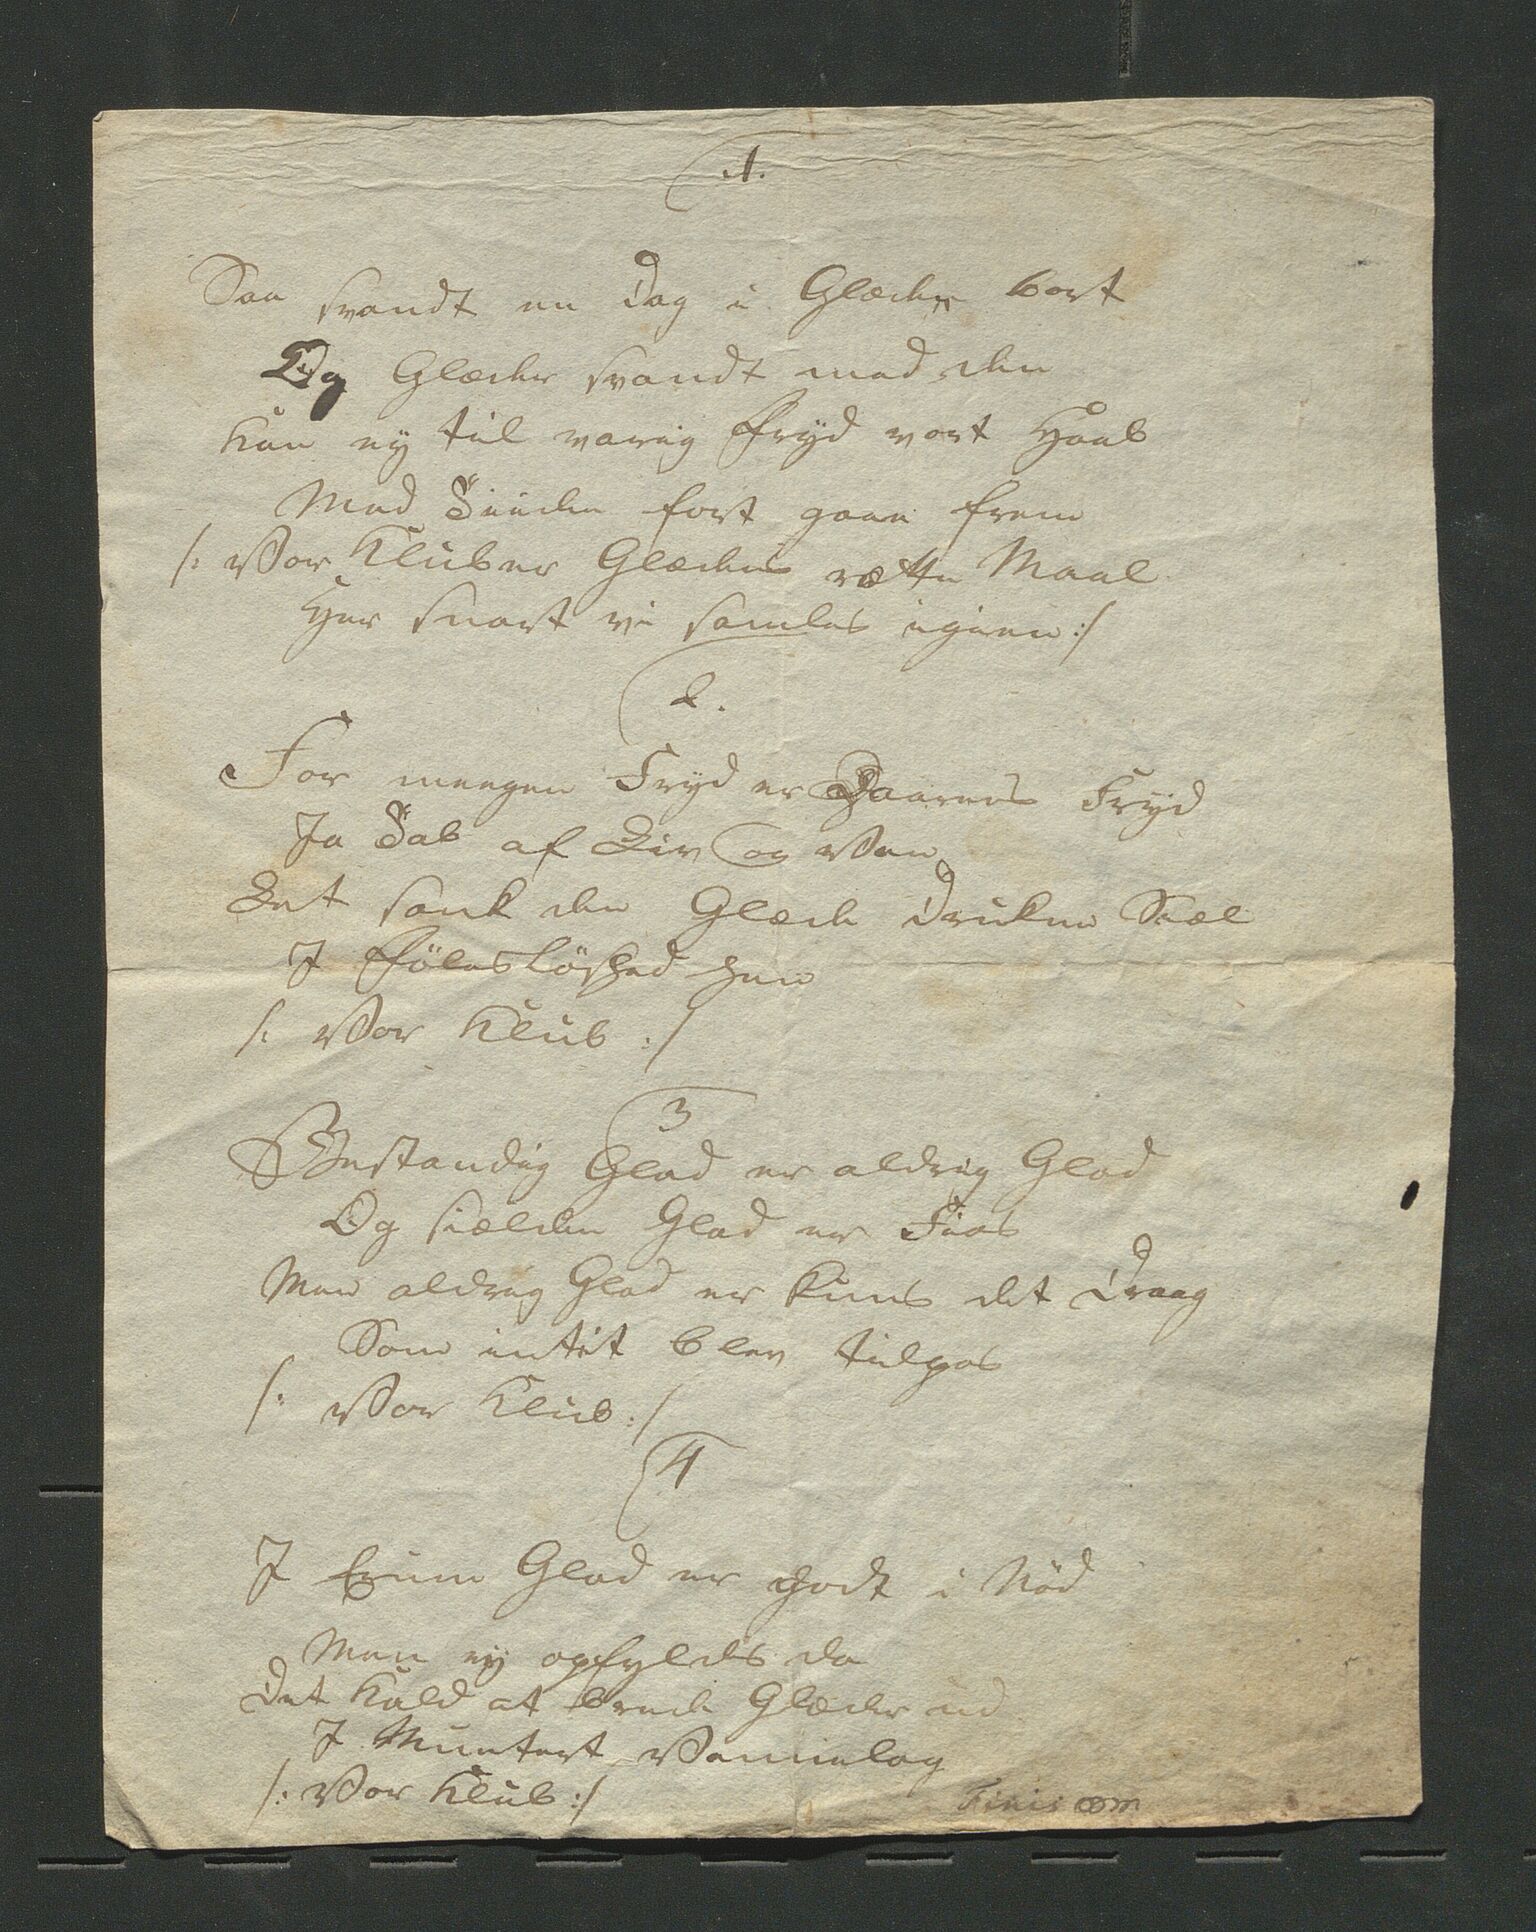 1.
Saa svandt en Dag i Glæder bort
Og Glæder svandt med den
Kun ej til varig Fryd vort Haab
Med Tiiden fort gaae frem
/: Vor Klub er Glædens rætte Maal
Her snart vi samles igien :/
2.
For meegen Fryd er Daarens Fryd
Ja Tab af Liv og Ven
Let sank den Glæde Drukne Siæl
I Føleslöshed hen
/: Vor Klub :/
3
Bestandig Glad er aldrig Glad
Og siælden Glad er Fias
Men aldrig Glad er kuns det Draag
Som intet blev tilpas
/: Vor Klub :/
4
I Eenrum Glad er godt i Nöd
Men ej opfyldes da
Det Kald at brede Glæder ud
I Muntert Vennelag
/: Vor Klub :/
Finis